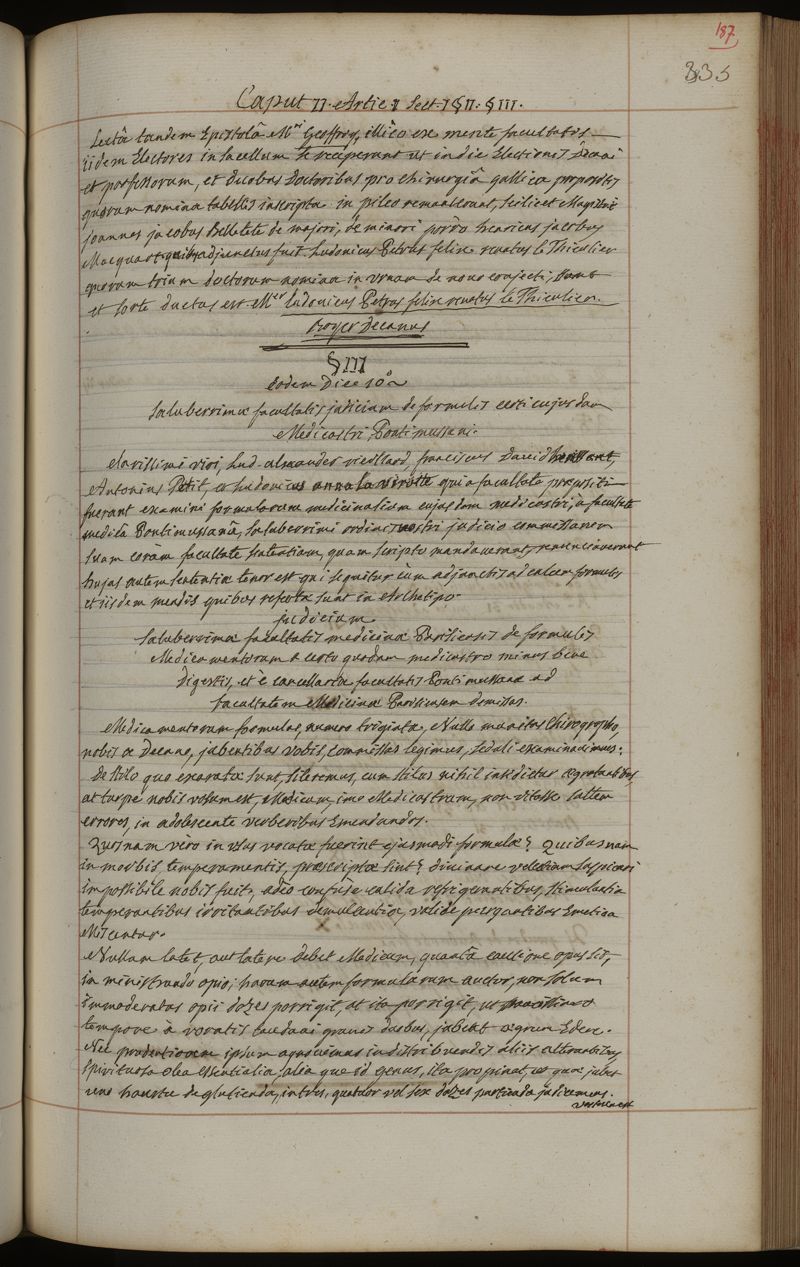 187
335
Caput II. Artic I Sect. I § II. § III.
Lectâ tandem Epistolâ Mri Geoffroy, illico ex mente facultatis
iidem Electores in sacellum se receperunt ut in die Electionis Decani
et professorum, et duobus doctoribus pro chirurgiâ gallicâ propositis
quorum nomina tabellis inscripta in pileo remanserant, scilicet Magistri
joannes jacobus Belletete de majori, de minori porro henricus jacobus
Macquart quibus adjunctus fuit Ludovicus Petrus felix renatus le Thieulier
quorum trium doctorum nomina in urnam de novo conjecti, sunt
et sorte ductus est Mer Ludovicus Petrus felix renatus le Thieulier.
Boyer Decanus
§ III
Eodem Die 10a
Saluberrimæ facultatis judicium de formulis cujusdam
Medicastri Pontimussani.
Clarissimi viri, Lud. alexander vieillard, franciscus David herissant,
Antonius Petit, et Ludovicus anna la virotte qui a facultate præpositi
fuerant examini formularum medicinalium cujusdam medicastri, a facultate
medicâ Pontimussanâ, saluberrimi ordinis nostri judicio commissarum
suam coram facultate sententiam, quam scripto mandaverant, renunciaverunt
hujus autem sententiæ tenor est qui sequitur cum adjunctis ad calcem formulis
et iisdem mendis quibus refertæ sunt in Archetipo.
judicium
saluberrimæ facultatis medicinæ Parisiensis de formulis
Medicamentorum a certo quodam medicastro minus bene
Digestis, et è cancellaria facultatis Pontimussanæ ad
facultatem Medicinæ Parisiensem demissas.
Medicamentorum formulas, numero triginta, Nullo munitas Chirographo,
nobis a Decano, jubentibus vobis, commissas legimus, seduli examinavimus;
De stilo quo exaratæ sunt, sileremus, cum stilus nihil insidietur ægrotantibus,
at turpe nobis visum est, Medicum, imo Medicastrum, non vitasse saltem
errores, in adolescente verberibus Emendandos.
Quosnam vero in usus vocatæ fuerint ejusmodi formulæ? Quibusnam
in morbis temperamentis, præscriptæ sint? divinare vel etiam suspicari
impossibile nobis fuit, adeo confuse calida refrigerantibus, stimulantia
temperantibus irritantibus demulcentia, valide purgantibus Emetica
Miscentur.
Nullum latet, aut latere debet Medicum, quantâ cautione opus sit,
in ministrando opio; harum autem formularum auctor, non solum
immoderatas opii dozes porrigit, at ita porrigit, ut
tempore a voratis granis duobus, jubeat ægrum Edere.
Nec prudentiorem ipsum agnovimus in distribuendis aliis
spirituosa olea Essentialia salia que id genus, ita propinat, ut quæ jubet
uno haustu deglutienda, in tres, quatuor vel sex dozes partienda judicemus.